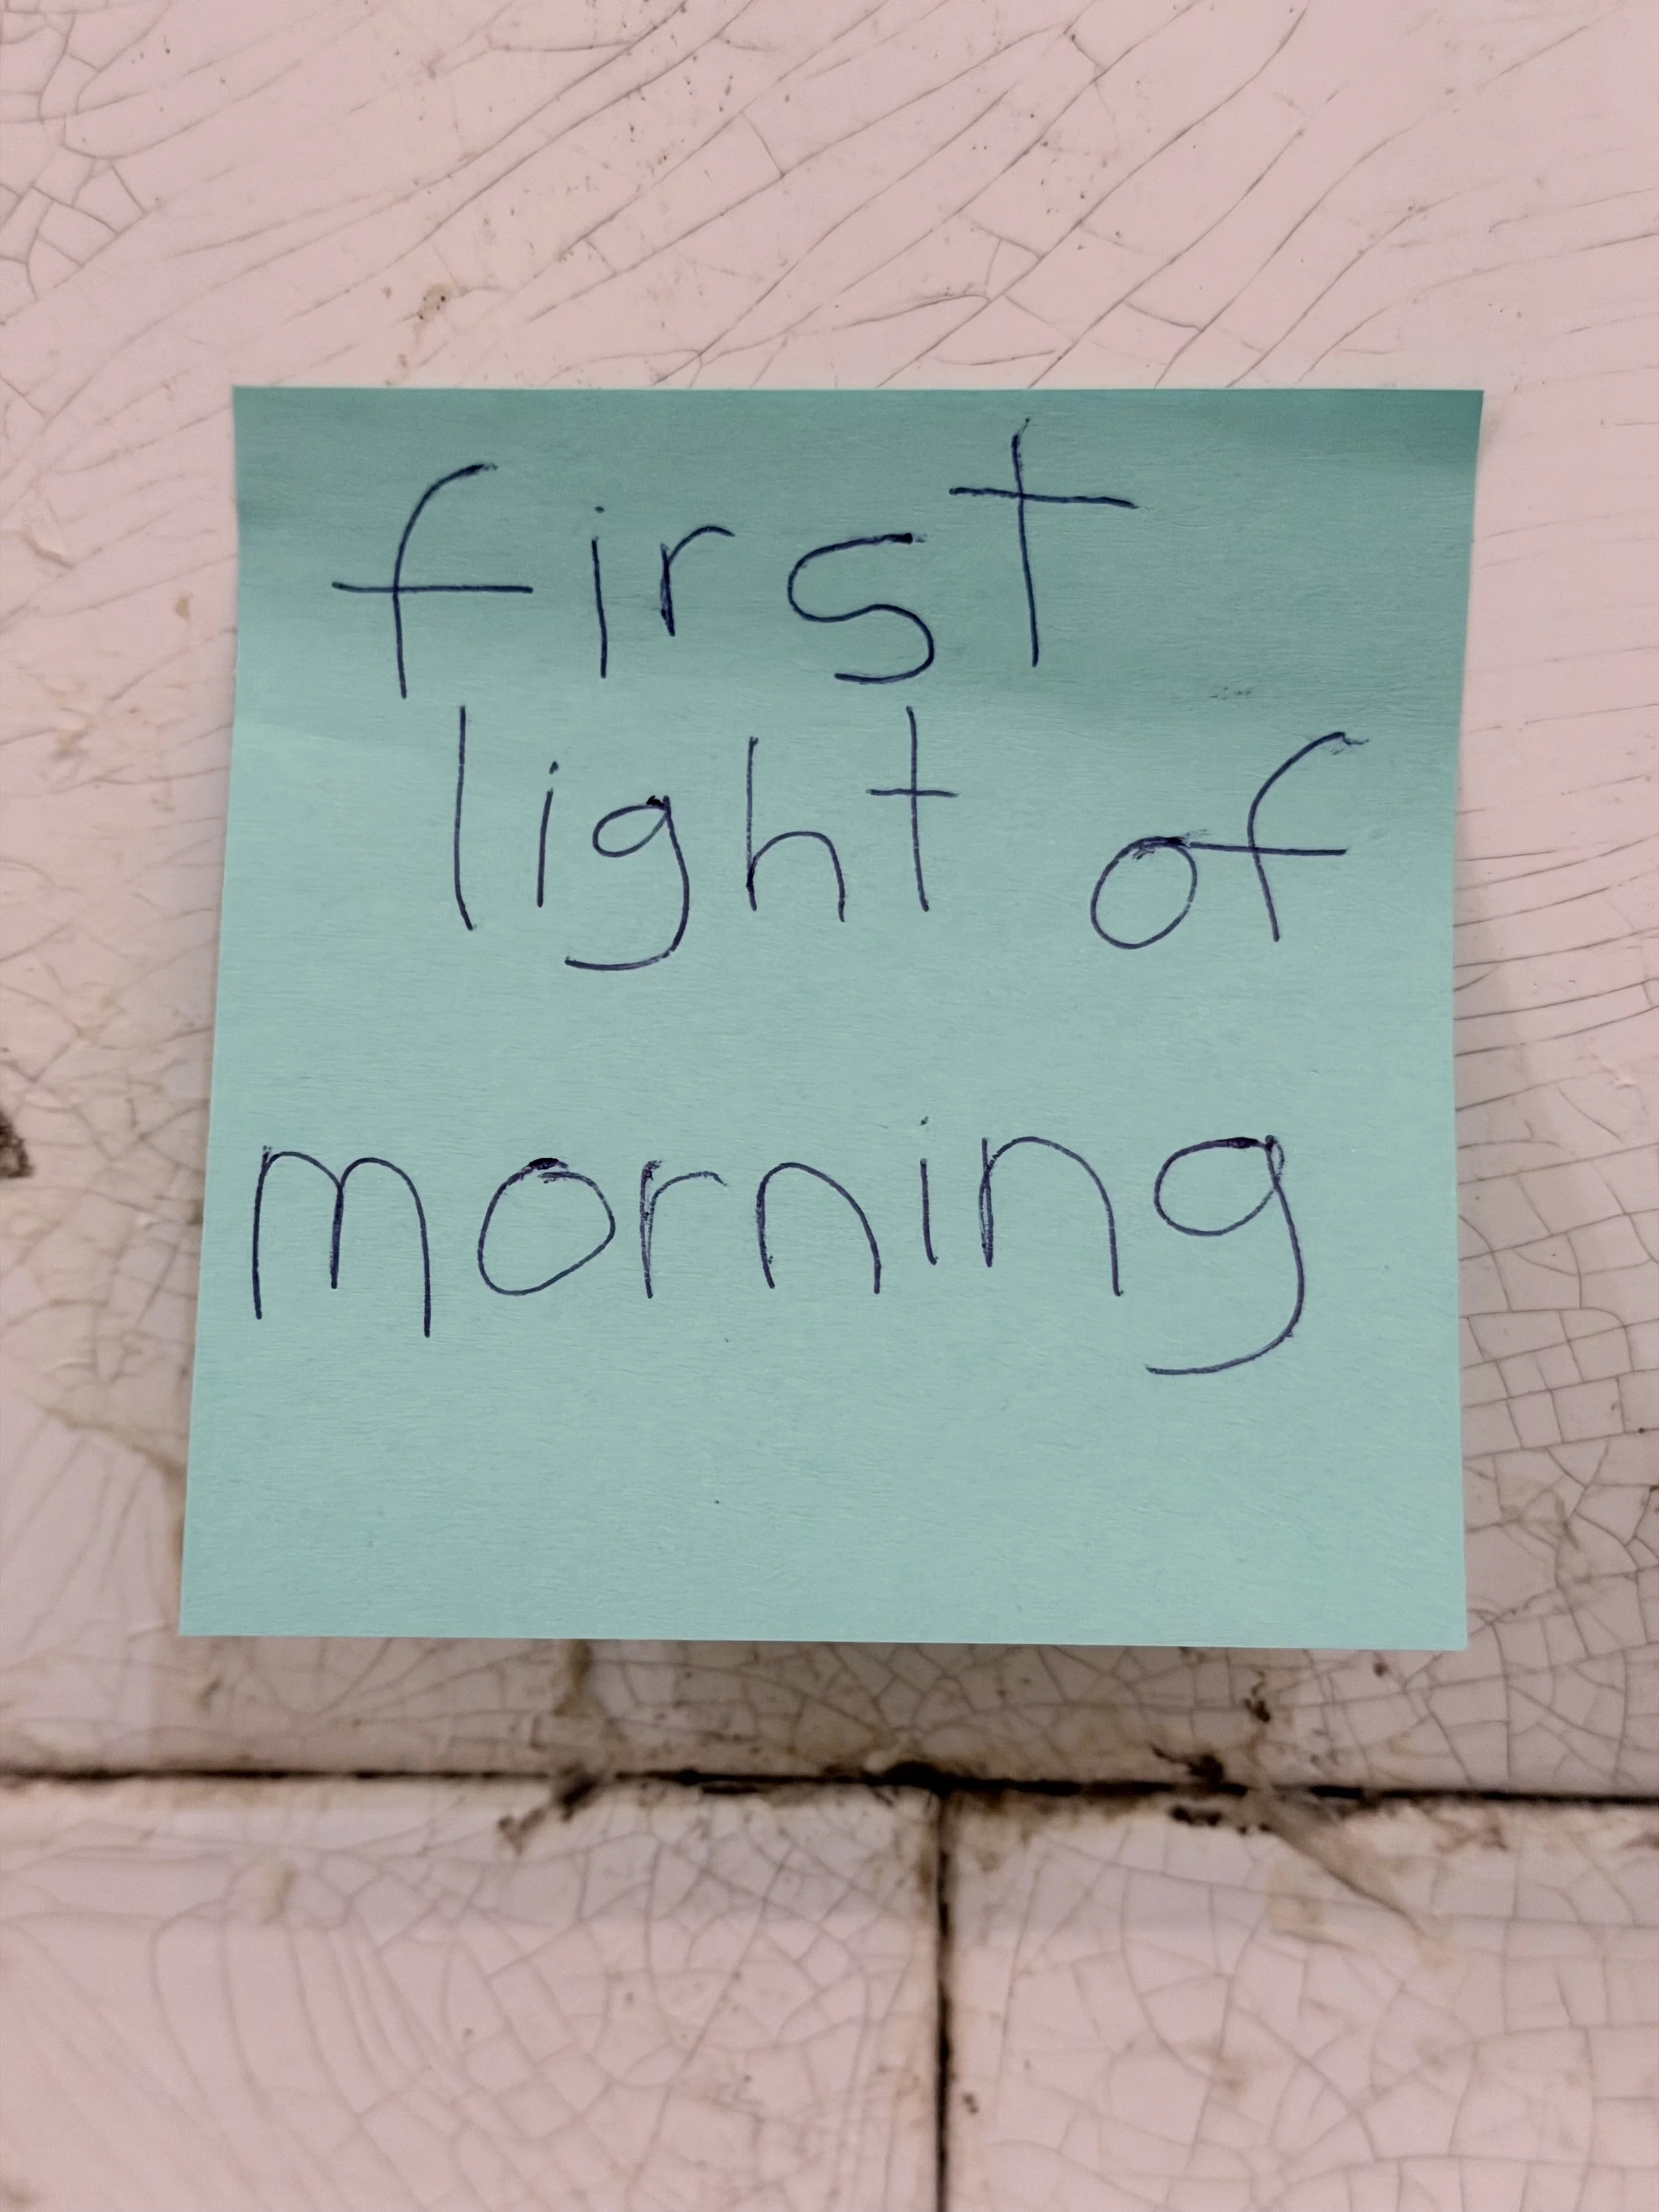 first
light of
morning